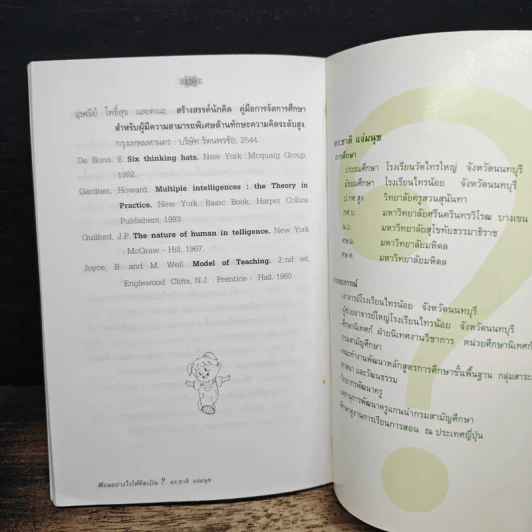 120
อุษณีย์ โพธิ์สุข และคณะ. สร้างสรรค์นักคิด คู่มือการจัดการศึกษา
สำหรับผู้มีความสามารถพิเศษด้านทักษะความคิดระดับสูง.
กรุงเทพมหานคร : บริษัท รัตนพรชัย, 2544.
De Bono, E. Six thinking hats. New York : Mcquaig Group,
1992.
Gardner, Howard. Multiple intelligences : the Theory in
Practice. New York : Basic Book, Harper Collins
Publishers, 1993.
Guilford, J.P. The nature of human in telligence. New York
: McGraw - Hill, 1967.
Joyce, B. and M. Weil. Model of Teaching. 2 nd ed.
Englewood Cliffs, N.J. : Prentice - Hall, 1980.
สอนอย่างไรให้คิดเป็น ? ดร.ชาติ แจ่มนุช
ดร.ชาติ แจ่มนุช
การศึกษา
ประถมศึกษา โรงเรียนวัดไทรใหญ่ จังหวัดนนทบุรี
มัธยมศึกษา โรงเรียนไทรน้อย จังหวัดนนทบุรี
ป.กศ.สูง วิทยาลัยครูสวนสุนันทา
กศ.บ. มหาวิทยาลัยศรีนครินทรวิโรฒ บางเขน
น.บ. มหาวิทยาลัยสุโขทัยธรรมาธิราช
ศษ.ม. มหาวิทยาลัยมหิดล
ศษ.ด. มหาวิทยาลัยมหิดล
ประสบการณ์
-อาจารย์โรงเรียนไทรน้อย จังหวัดนนทบุรี
-ผู้ช่วยอาจารย์ใหญ่โรงเรียนไทรน้อย จังหวัดนนทบุรี
-ศึกษานิเทศก์ ฝ่ายนิเทศงานวิชาการ หน่วยศึกษานิเทศก์
กรมสามัญศึกษา
-คณะทำงานพัฒนาหลักสูตรการศึกษาขั้นพื้นฐาน กลุ่มสาระ
ศาสนา และวัฒนธรรม
-วิทยากรพัฒนาครู
พัฒนาครูแกนนำกรมสามัญศึกษา
ศึกษาดูงานการเรียนการสอน ณ ประเทศญี่ปุ่น